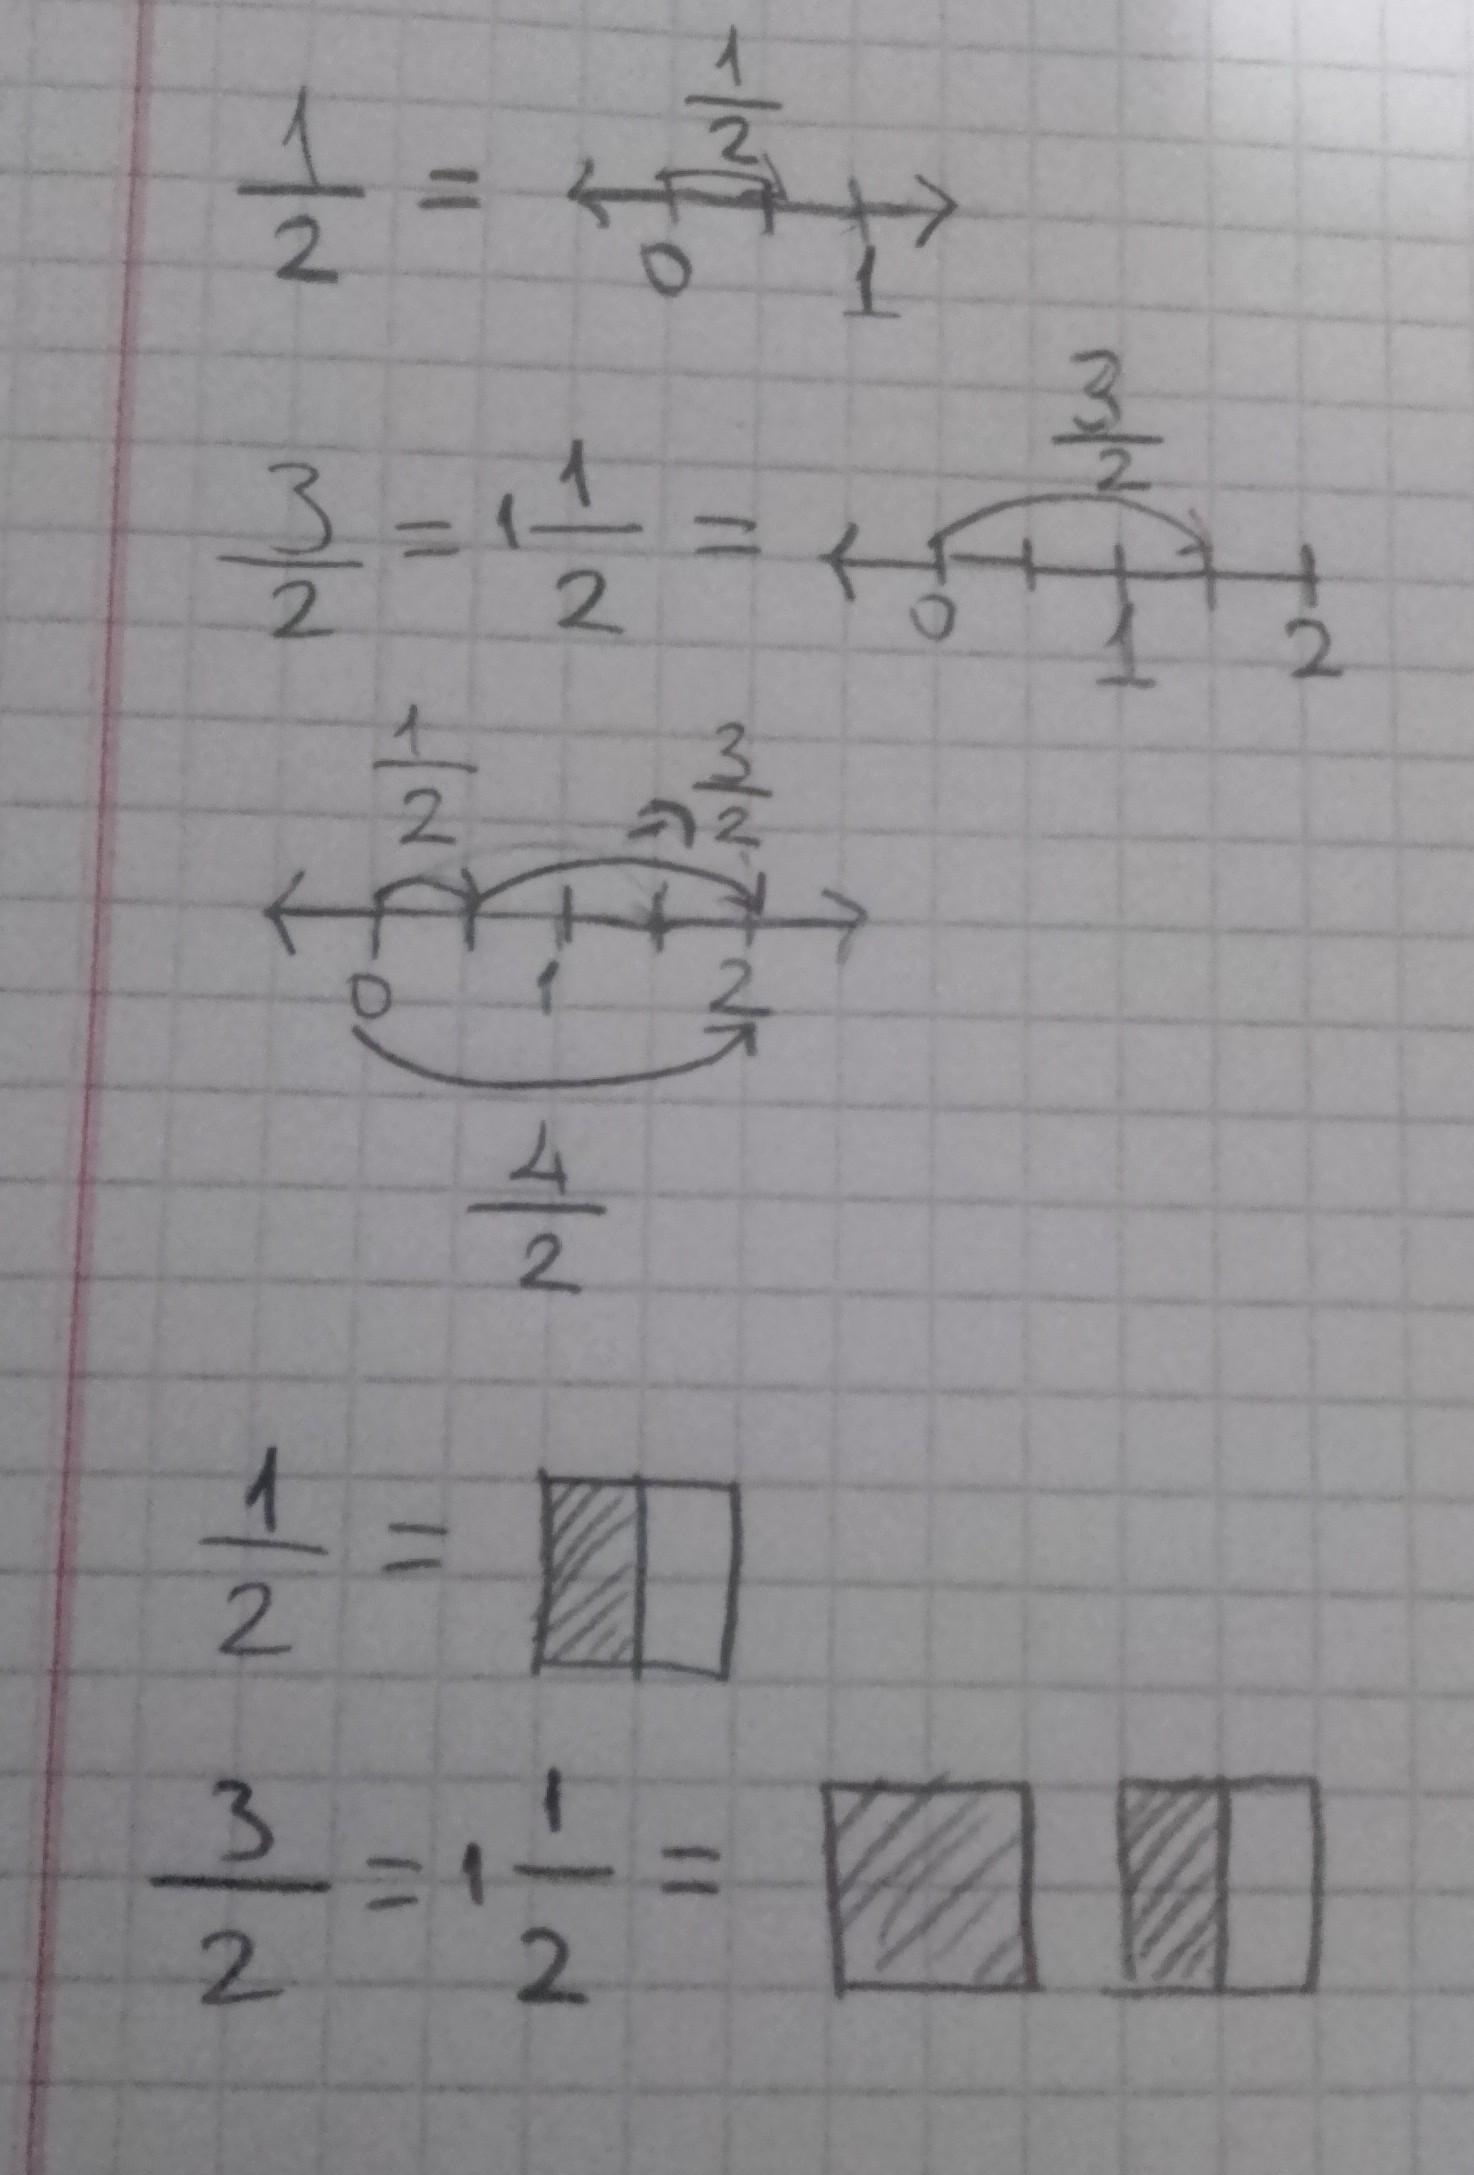 1/2 = 1/2
0 1
3/2 = 1 1/2 = 3/2
0 1 2
1/2 ⇒ 3/2
0 1 2
4/2
1/2 =
3/2 = 1 1/2 =